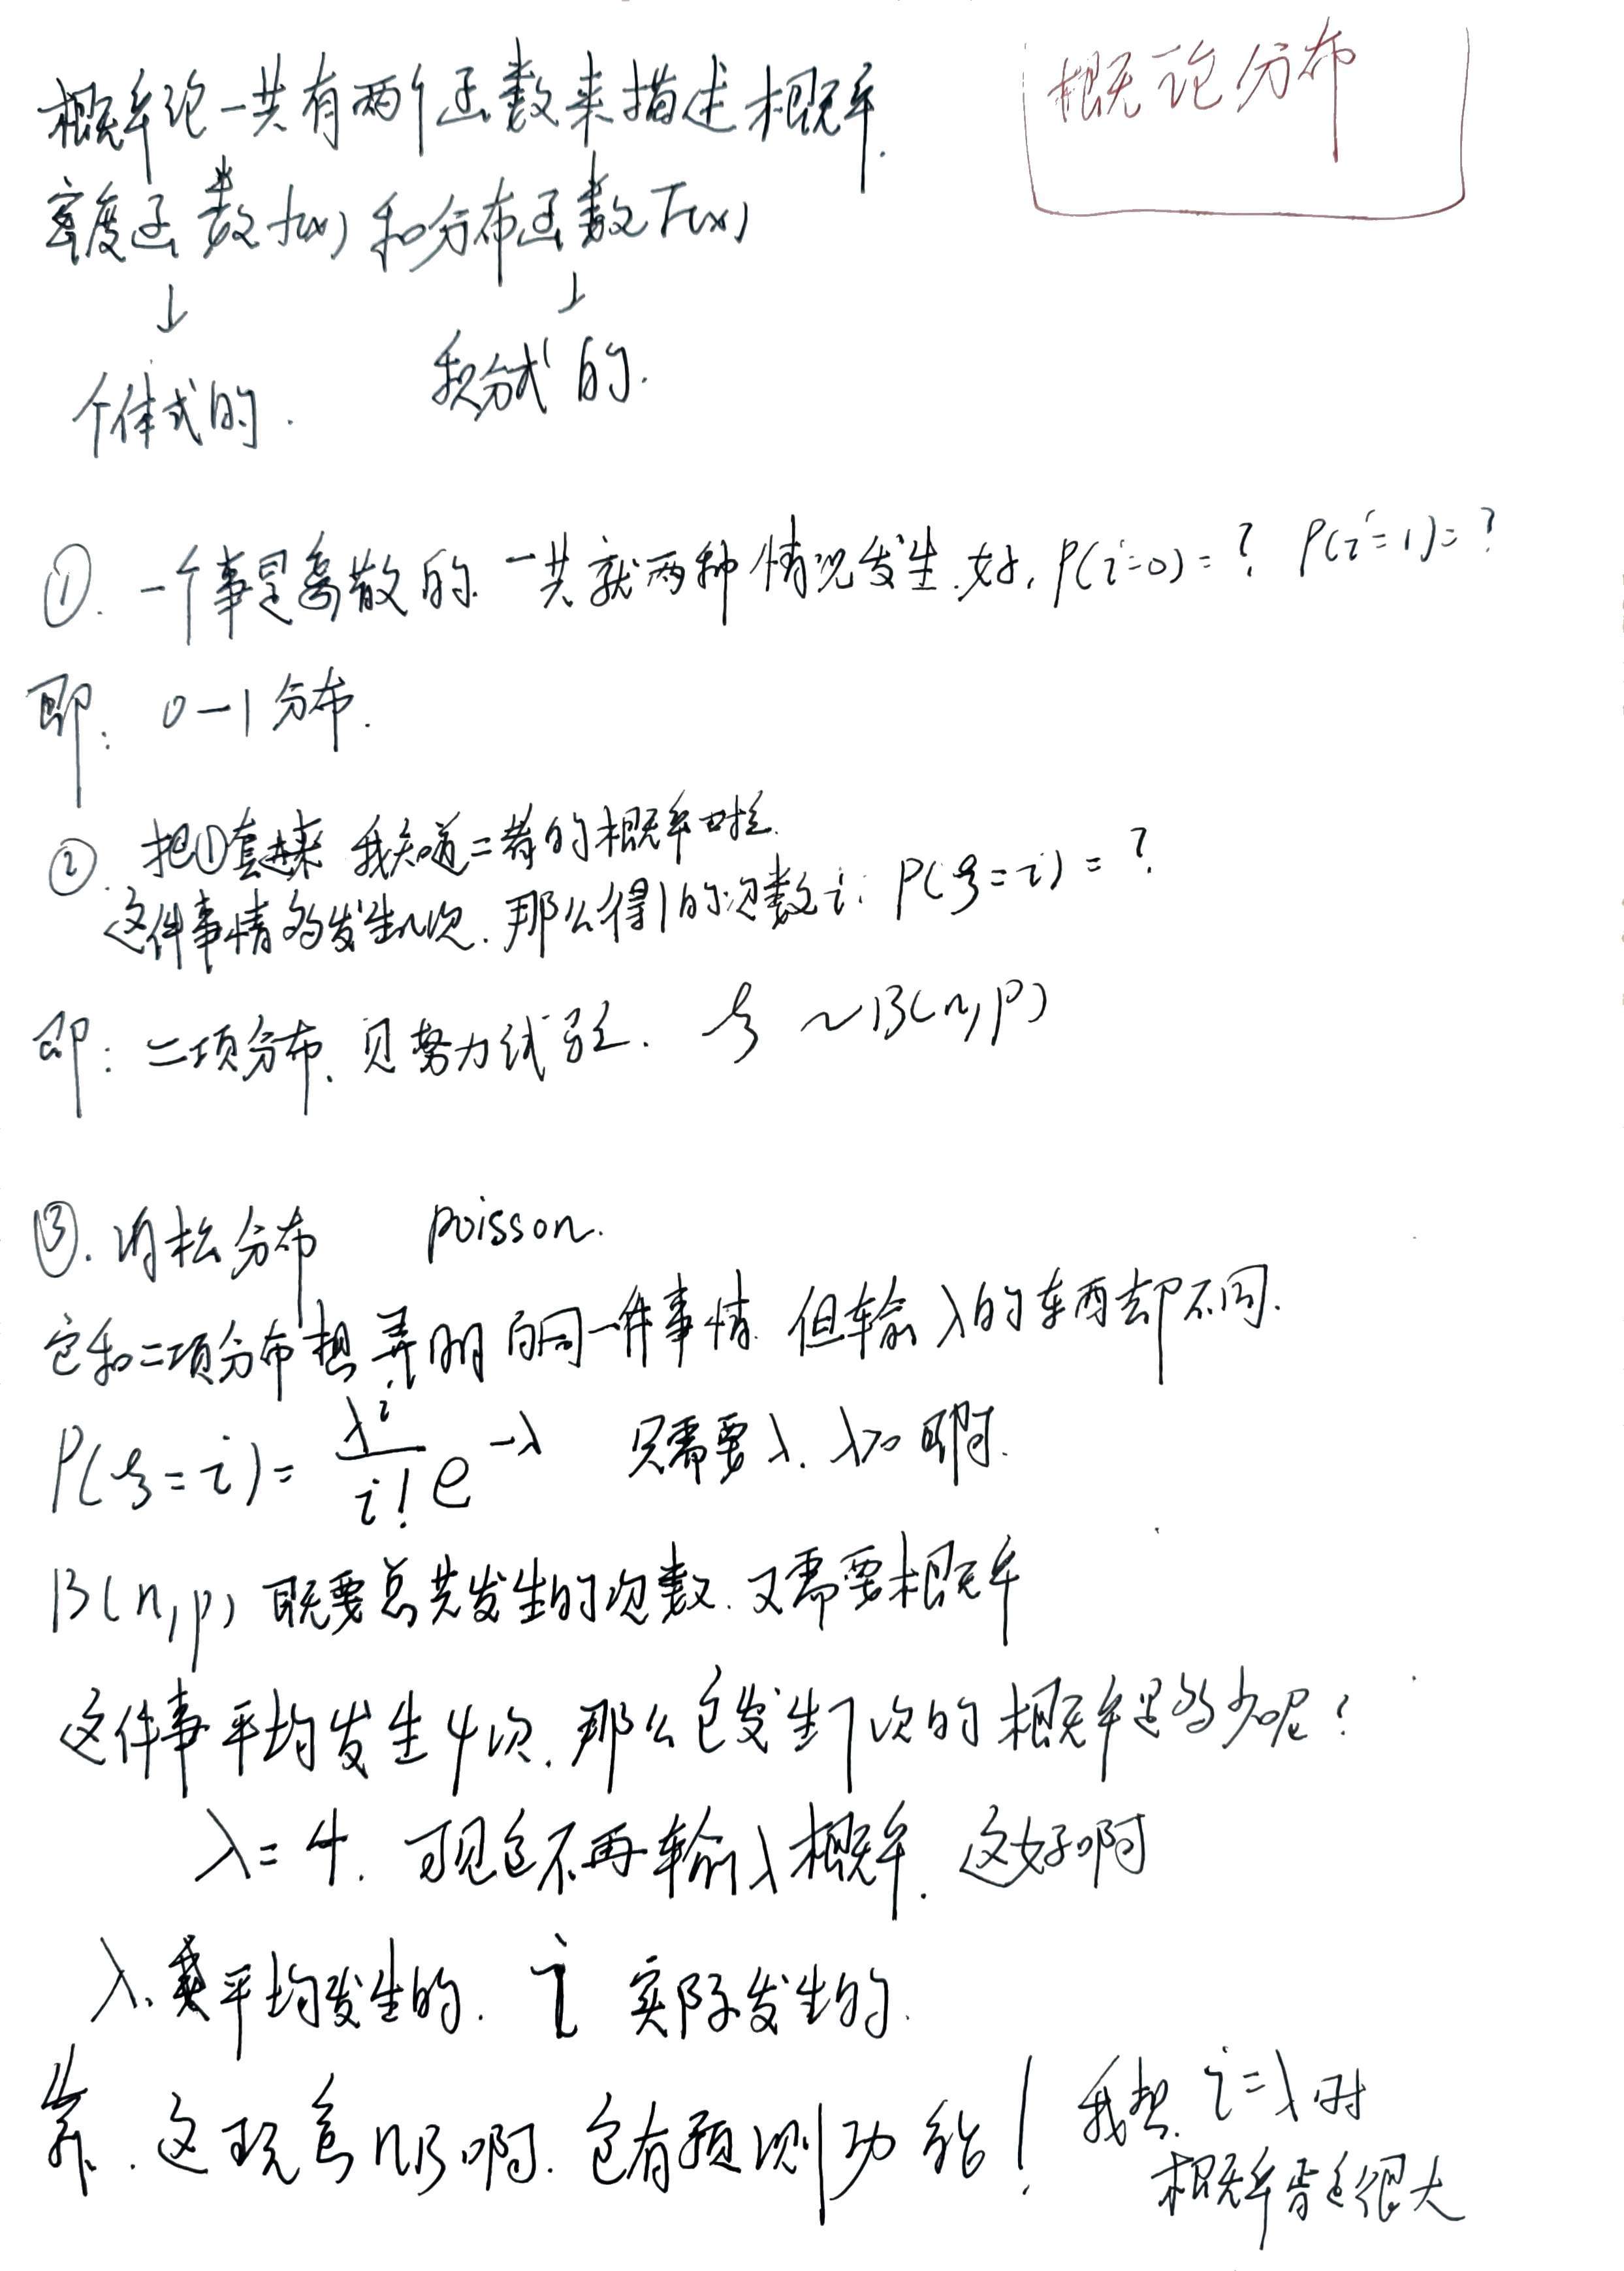 概率论一共有两个函数来描述概率.
概无论分布
密度函数f(x)和分布函数F(x)
↓ ↓
个体式的. 积分式的.
①. 一个事是离散的.一共就两种情况发生.好, P(i=0)=? P(i=1)=?
即: 0-1分布.
②. 把①套进来 我知道二者的概率啦.
这件事情多发生n次.那么得1的次数i: P(ξ=i)=?
即: 二项分布.贝努力试验. ξ~B(n,p)
③. 泊松分布 poisson.
它和二项分布想弄明白同一件事情.但输入的东西却不同.
P(ξ=i)= λ^i/i! e^-λ 只需要λ. λ>0啊.
B(n,p)既要总共发生的次数.又需要概率
这件事平均发生4次.那么它发生7次的概率是多少呢?
λ=4. 可见它不再输入概率.这好啊
λ.是平均发生的. i 实际发生的.
靠.这玩意NB啊.它有预测功能!
我想.i=λ时
概率肯定很大